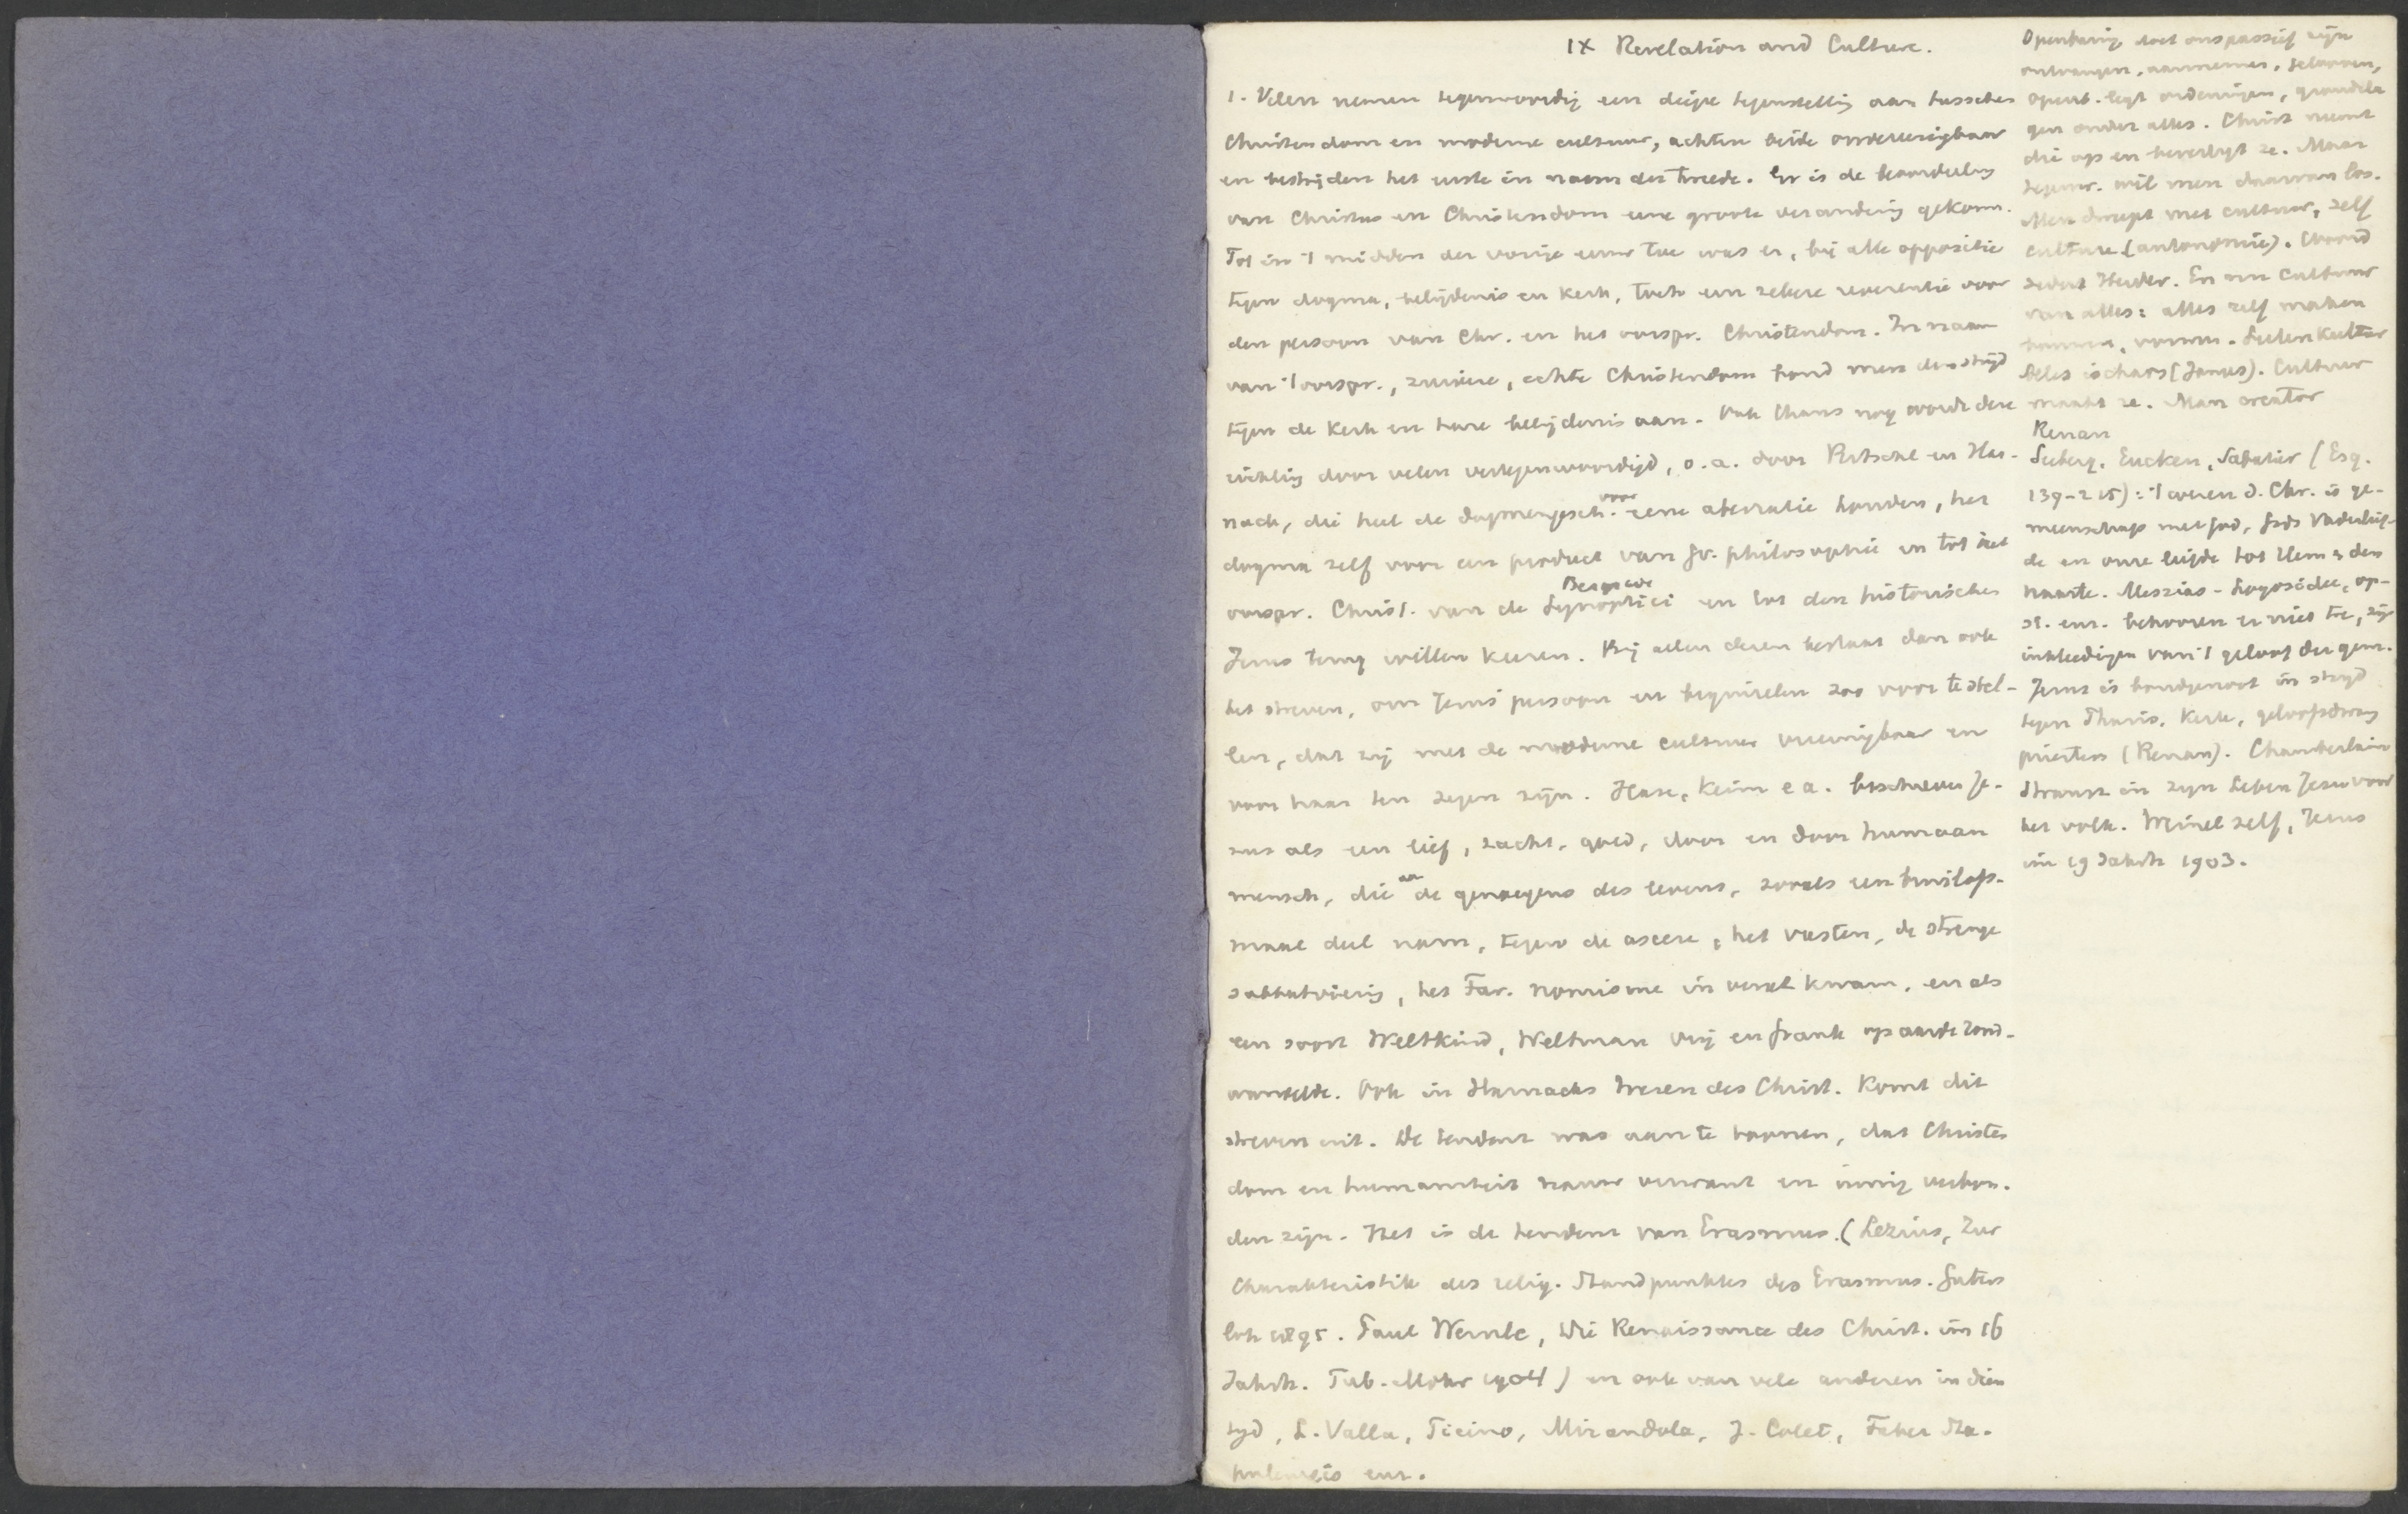 IX Revelation and Culture.
1. Velen nemen tegenwoordig een diepe tegenstelling aan tusschen
Christendom en moderne cultuur, achten beide onvereenigbaar
en bestrijden het eerste in naam der tweede. Er is de beoordeeling
van Christus en Christendom eene groote verandering gekom.
Tot in 't midden der vorige eeuw toe was er, bij alle oppositie
tegen dogma, belijdenis en kerk, toch een zekere reverentie voor
den persoon van Chr. en het oorspr. Christendom. In naam
van 't oorspr., zuivere, echte Christendom bond men den strijd
tegen de kerk en hare belijdenis aan. Ook thans nog wordt deze
richting door velen vertegenwoordigd, o.a. door Ritschl en Har-
nack, die heel de dogmengesch. voor eene aberratie houden, het
dogma zelf voor een product van Gr. philosophie en tot het
oorspr. Christ. van de Bergrede Synoptici en tot den historischen
Jezus terug willen keeren. Bij allen dezen bestaat dan ook
het streven, om Jezus' persoon en beginselen zoo voor te stel-
len, dat zij met de moderne cultuur vereenigbaar en
voor haar ten zegen zijn. Hase, Keim e a. beschreven Je-
zus als een lief, zacht, goed, door en door humaan
mensch, die aan de genoegens des levens, zooals een bruilofts-
maal deel nam, tegen de ascese, het vasten, de strenge
sabbatviering, het Far. nomisme in verzet kwam, en als
een soort Weltkind, Weltman vrij en frank op aarde rond-
wandelde. Ook in Harnacks Wezen des Christ. komt dit
streven uit. De tendenz was aan te toonen, dat Christen
dom en humaniteit nauw verwant en innig verbon-
den zijn. Het is de tendenz van Erasmus. (Lezius, Zur
Charakteristik des relig. Standpunktes des Erasmus. Guters
loh 1895. Paul Wernle, Die Renaissance des Christ. im 16
Jahrh. Tub. Mohr 1904) en ook van vele anderen in dien
tijd, L. Valla, Ficino, Mirandola, J. Colet, Faber Sta-
pulensis enz.
Openbaring doet ons passief zijn
ontvangen, aannemen, gelooven,
openb. legt ordeningen, grondsla
gen onder alles. Christ neemt
die op en bevestigt ze. Maar
tegenw. wil men daarvan los.
Men dweept met cultuur, zelf
culture (autonomie). Woord
sedert Herder. En nu cultuur
van alles: alles zelf maken
vormen. Seelenkultur
Alles is chaos (Janus). Cultuur
maakt ze. Man creator
Renan
Seeberg, Eucken, Sabatier (Esq.
139-215): 't wezen d. Chr. is ge-
meenschap met God, Gods Vaderlief-
de en onze liefde tot Hem & den
naaste. Messias-Logosidee, op-
st. enz. behooren er niet toe, zijn
inkleedingen van 't geloof der gem.
Jezus is bondgenoot in strijd
tegen Phariz. kerk, geloofsdwang
priesters (Renan). Chamberlain
Strauss in zijn Leben Jesu voor
het volk. Weinel zelf, Jesus
im 19 Jahrh 1903.